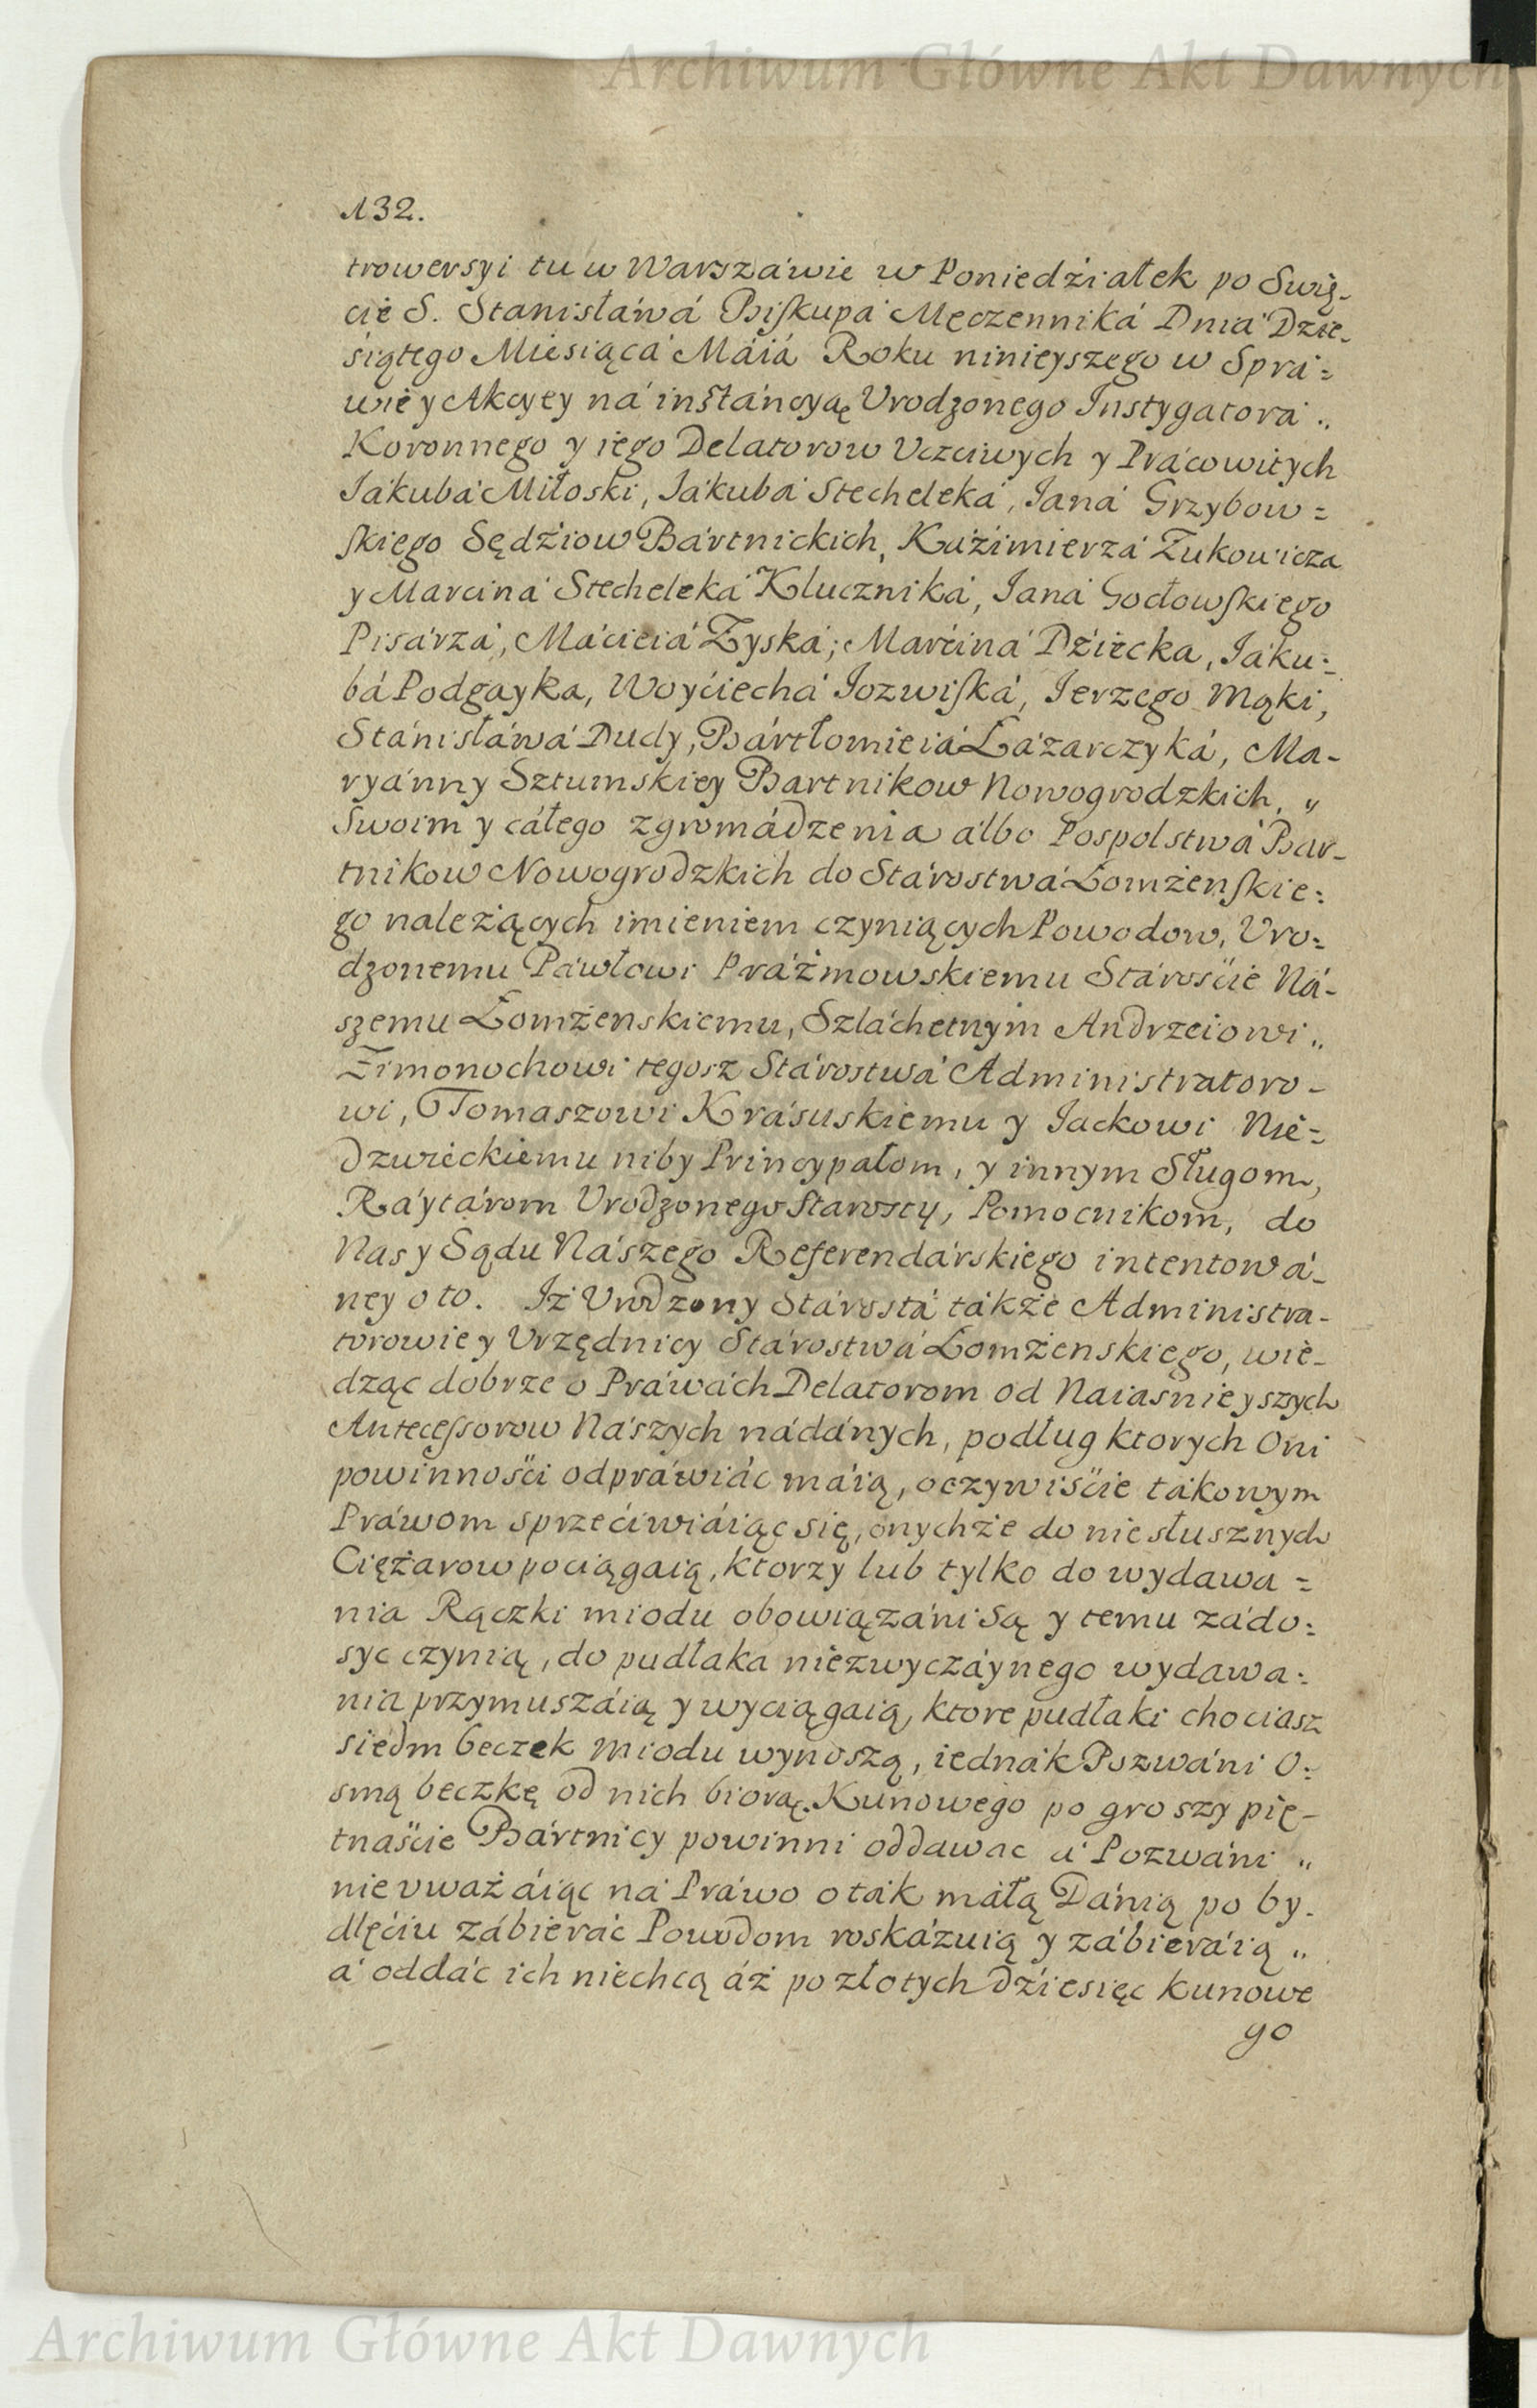 Archiwum Główne Akt Dawnych
132.
trowersyi tu w Warszáwie w Poniedźiałek po Swię-
cie S. Stanisłáwá Biſkupá Męczenniká Dniá Dzie-
śiątego Miesiącá Máiá Roku ninieyszego w Sprá=
wie y Akcyey ná instáncyą Vrodzonego Instygatorá „
Koronnego y iego Delatorow Vczciwych y Prácowitych
Jákubá Miłoski, Jákubá Stecheleká, Janá Grzybow=
ſkiego Sędźiow Bártnickich, Káźimierzá Żukowicza
y Marciná Stecheleká Kluczniká, Janá Godowſkiego
Pisárzá, Máćieiá Zyská, Marćiná Dźiecka, Jáku=
bá Podgayka, Woyćiechá Jozwiſká, Jerzego Mąki,
Stánisłáwá Dudy, Bártłomieiá Łázarczyká, Ma-
ryánny Sztumskiey Bartnikow Nowogrodzkich, „
Swoim y cáłego zgromádzenia álbo Pospolstwá Bar-
tnikow Nowogrodzkich do Stárostwá Łomżenſkie=
go należiących imieniem czyniących Powodow, Vro=
dzonemu Páwłowi Práżmowskiemu Stárośćie Ná-
szemu Łomżenskiemu, Szláchetnym Andrzeiowi „
Zimonochowi tegosz Stárostwá Administratoro-
wi, Tomaszowi Krásuskiemu y Jackowi Nie=
dzwieckiemu niby Princypałom, y innym Sługom,
Ráytárom Vrodzonego Starosty, Pomocnikom, do
Nas y Sądu Nászego Referendárskiego intentowá-
ney o to. Iż Vrodzony Stárostá tákże Administra-
torowie y Vrzędnicy Stárostwá Łomżenskiego, wie-
dząc dobrze o Práwách Delatorom od Naiasnieyszych
Anteceſsorow Nászych nádánych, podług ktorych Oni
powinnośći odpráwiác máią, oczywiśćie tákowym
Práwom sprzećiwiáiąc się, onychże do niesłusznych
Ciężarow pociągaią, ktorzy lub tylko do wydawa=
nia Rączki miodu obowiązáni Są y temu zádo=
syc czynią, do pudłaka niezwyczáynego wydawa=
nia przymuszáią y wyciągaią, ktore pudłaki chociasz
siedm beczek miodu wynoszą, iednák Pozwáni O=
smą beczkę od nich biorą. Kunowego po groszy pię-
tnaśćie Bártnicy powinni oddawac á Pozwáni „
nie vważáiąc ná Práwo o ták máłą Dánią po by-
dlęćiu zábieráć Powodom roskázuią y zábieráią „
á oddáć ich niechcą áż po złotych dźiesięć Kunowe
go
Archiwum Główne Akt Dawnych